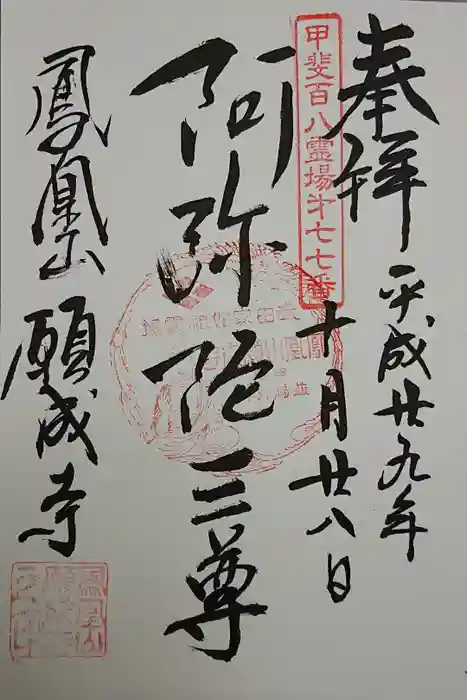 奉拝
平成廿九年
十月廿八日
甲斐百八霊場第七七番
阿弥陀三尊
鳳凰山
願成寺